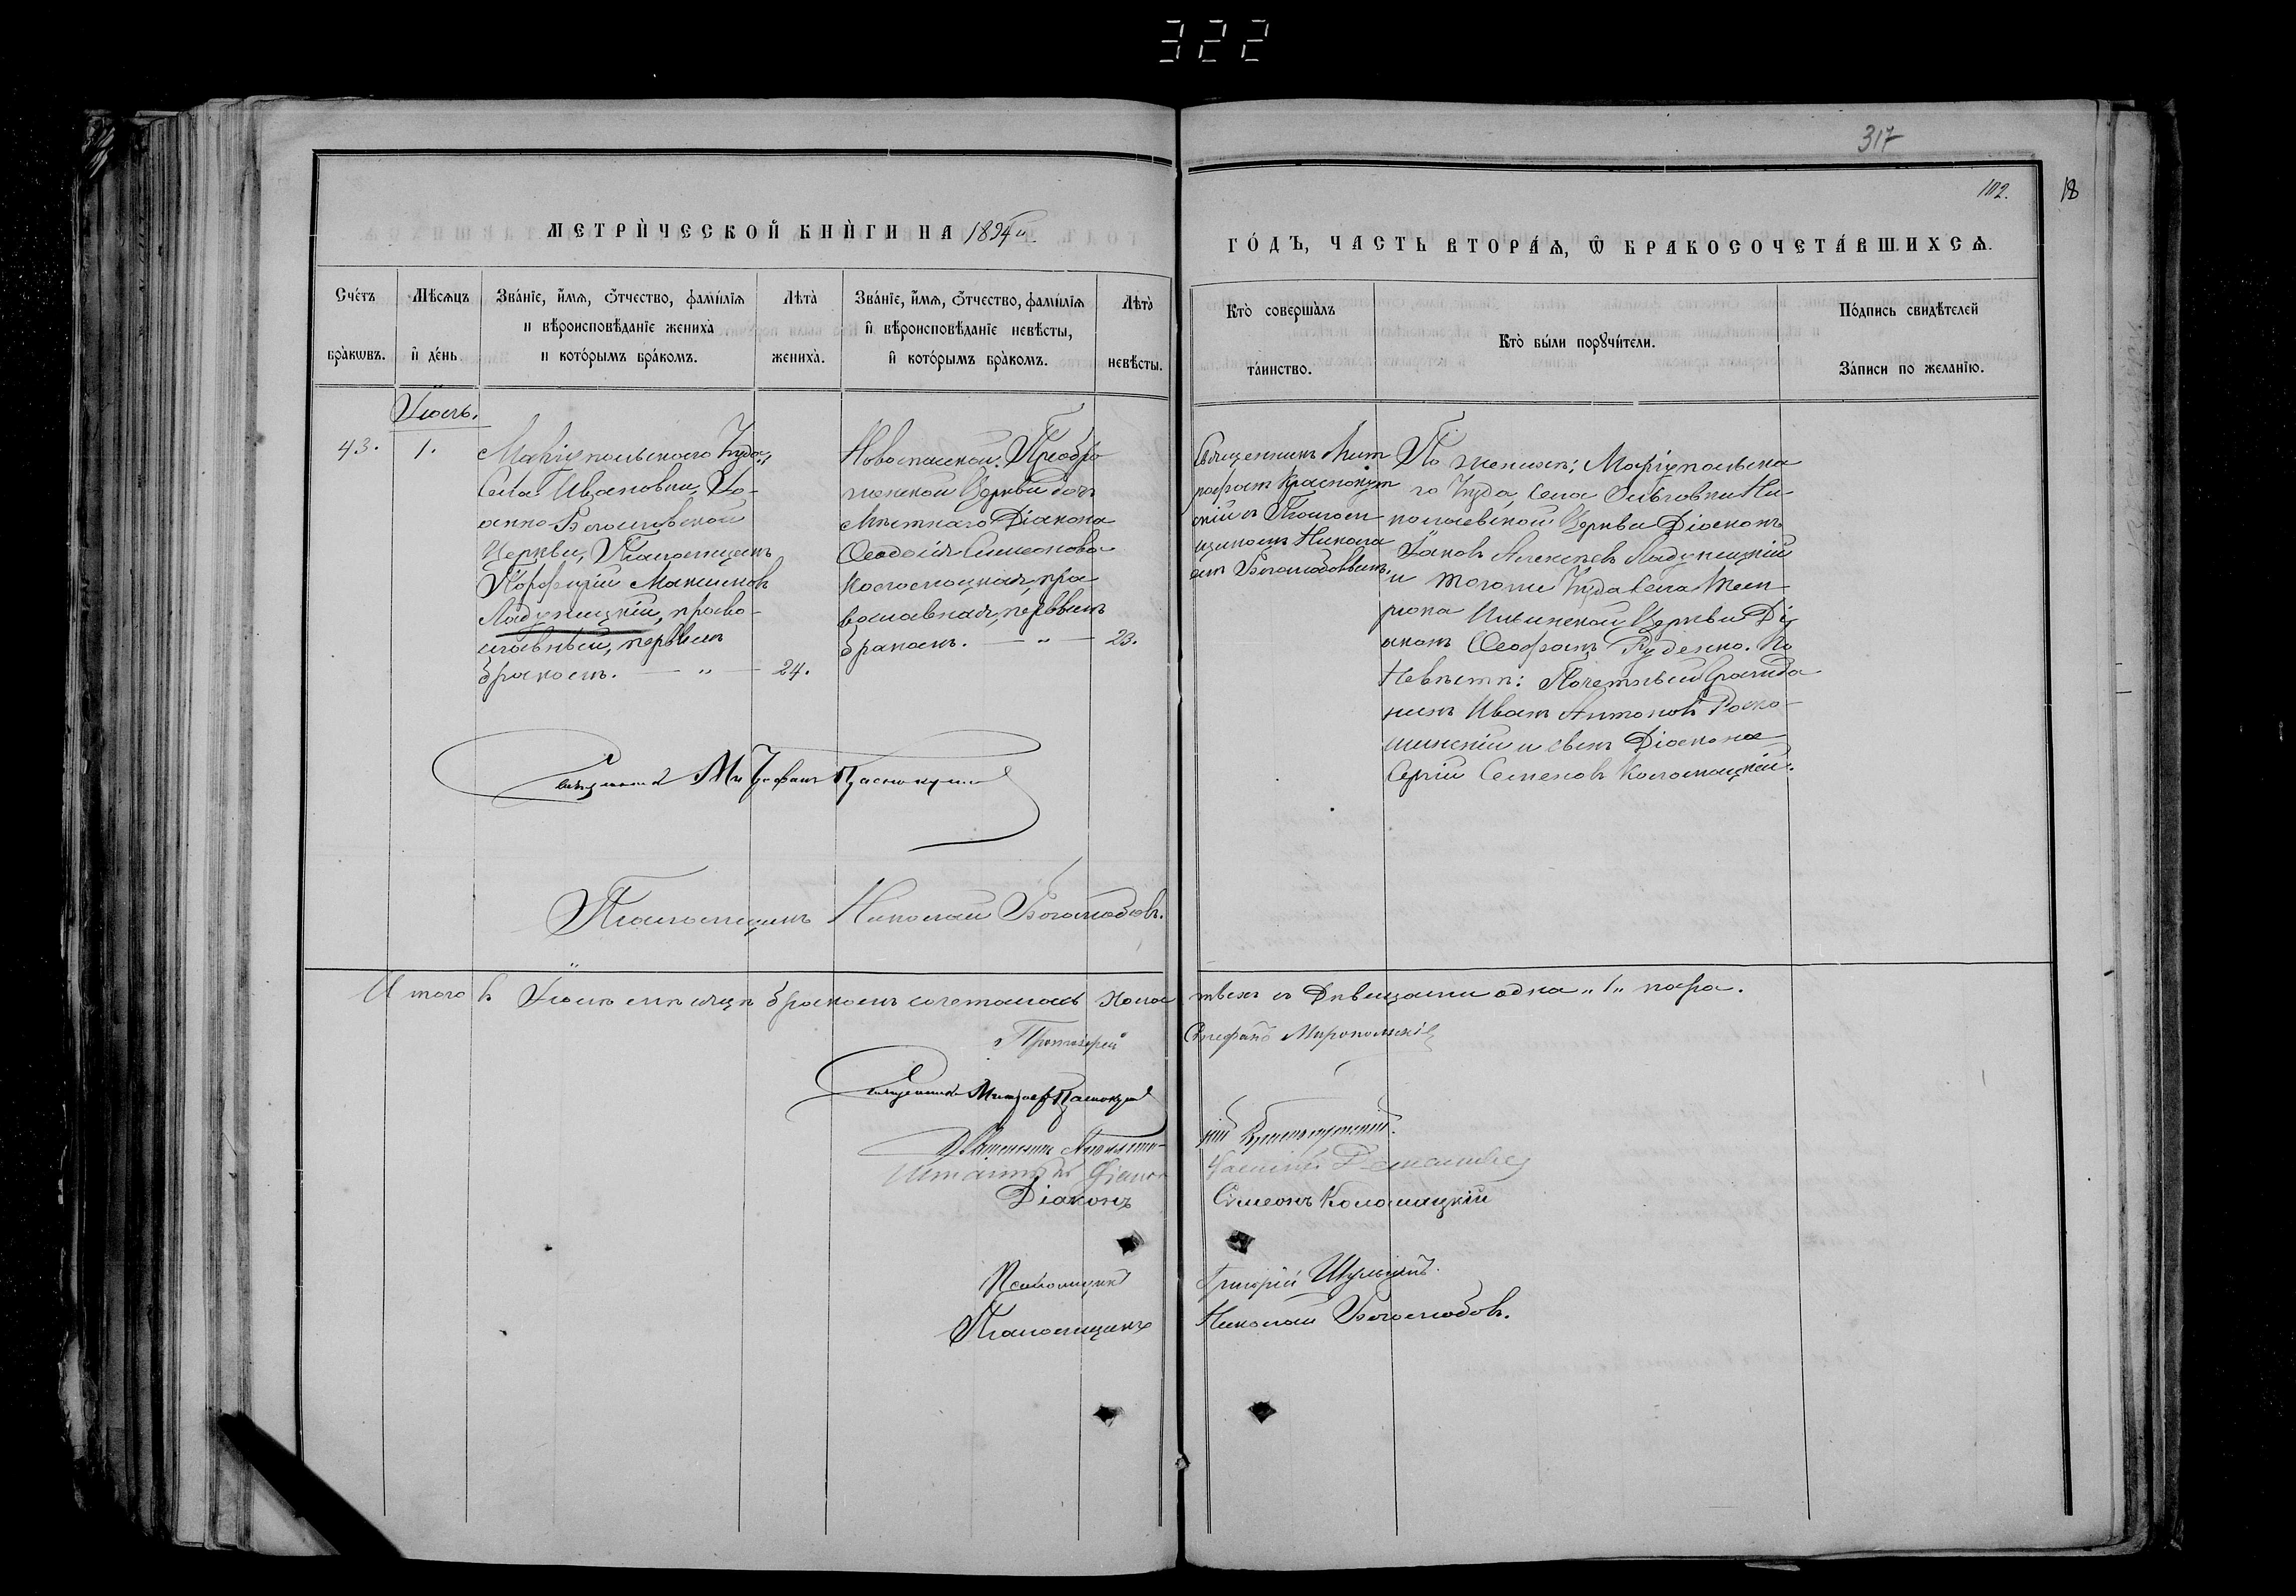 322
317
102.
18
МЕТРИ́ЧЕСКОЙ КНИ́ГИ НА 1894й
ГО́ДЪ, ЧАСТЬ ВТОРА́Ѧ, Ѿ БРАКОСОЧЕТА́ВШИХСѦ.
Сче́тъ
бра́кѡвъ.
Мѣ́сѧцъ
и҆ де́нь
Зва́нїе, и҆́мѧ, ѻ҆́тчество, фамі́лїѧ
и вѣроисповѣ́данїе жениха̀
и кото́рымъ бра́комъ.
Лѣта̀
жениха̀.
Зва́нїе, и҆́мѧ, ѻ҆́тчество, фамі́лїѧ
и҆ вѣроисповѣ́данїе невѣ́сты,
и҆ кото́рымъ бра́комъ.
Лѣта̀
невѣ́сты.
Кто̀ соверша́лъ
та́инство.
Кто̀ бы́ли порꙋчи́тели.
По́дпись свидѣ́телей
За́писи по жела́нїю.
Іюль.
43.
1.
Маріупольскаго Уѣзда,
Села Ивановки, Іо-
анно-Богословской
Церкви, Псаломщикъ
Порфирій Максимовъ
Ладухицкій, право-
славный, первымъ
бракомъ. — „ — 24.
Новоспаской. Преобра
женской Церкви дочь
мѣстнаго Діакона
Ѳеодосія Симеонова
Коломацкая, пра
вославная, первымъ
бракомъ. — „ — 23.
Священникъ Мит
рофанъ Краснокут
скій съ Псалом
щикомъ Никола
емъ Боголюбовымъ.
По женихѣ; Маріупольска
го Уѣзда, Села Ольговки Ни-
колаевской Церкви Діаконъ
Іаковъ Алексѣевъ Ладухицкій
и тогоже Уѣзда Села Тем-
рюка Церкви Ді
аконъ Ѳеофанъ Руденко. По
Невѣстѣ: Почетный Гражда
нинъ Иванъ Антоновъ
и сынъ Діакона
Сергій Семеновъ Коломацкій.
Священникъ Митрофанъ Краснокутскій
Псаломщикъ Николай Боголюбовъ.
Итого въ Іюлѣ мѣсяцѣ бракомъ сочеталась холос
тыхъ съ Дѣвицами одна „1„ пара.
Протоіерей Стефанъ Миропольскій
Священникъ Митроф Краснокутскій
Священникъ
Діаконъ Симеонъ Коломацкій
Псаломщикъ Григорій
Псаломщикъ Николай Боголюбовъ.